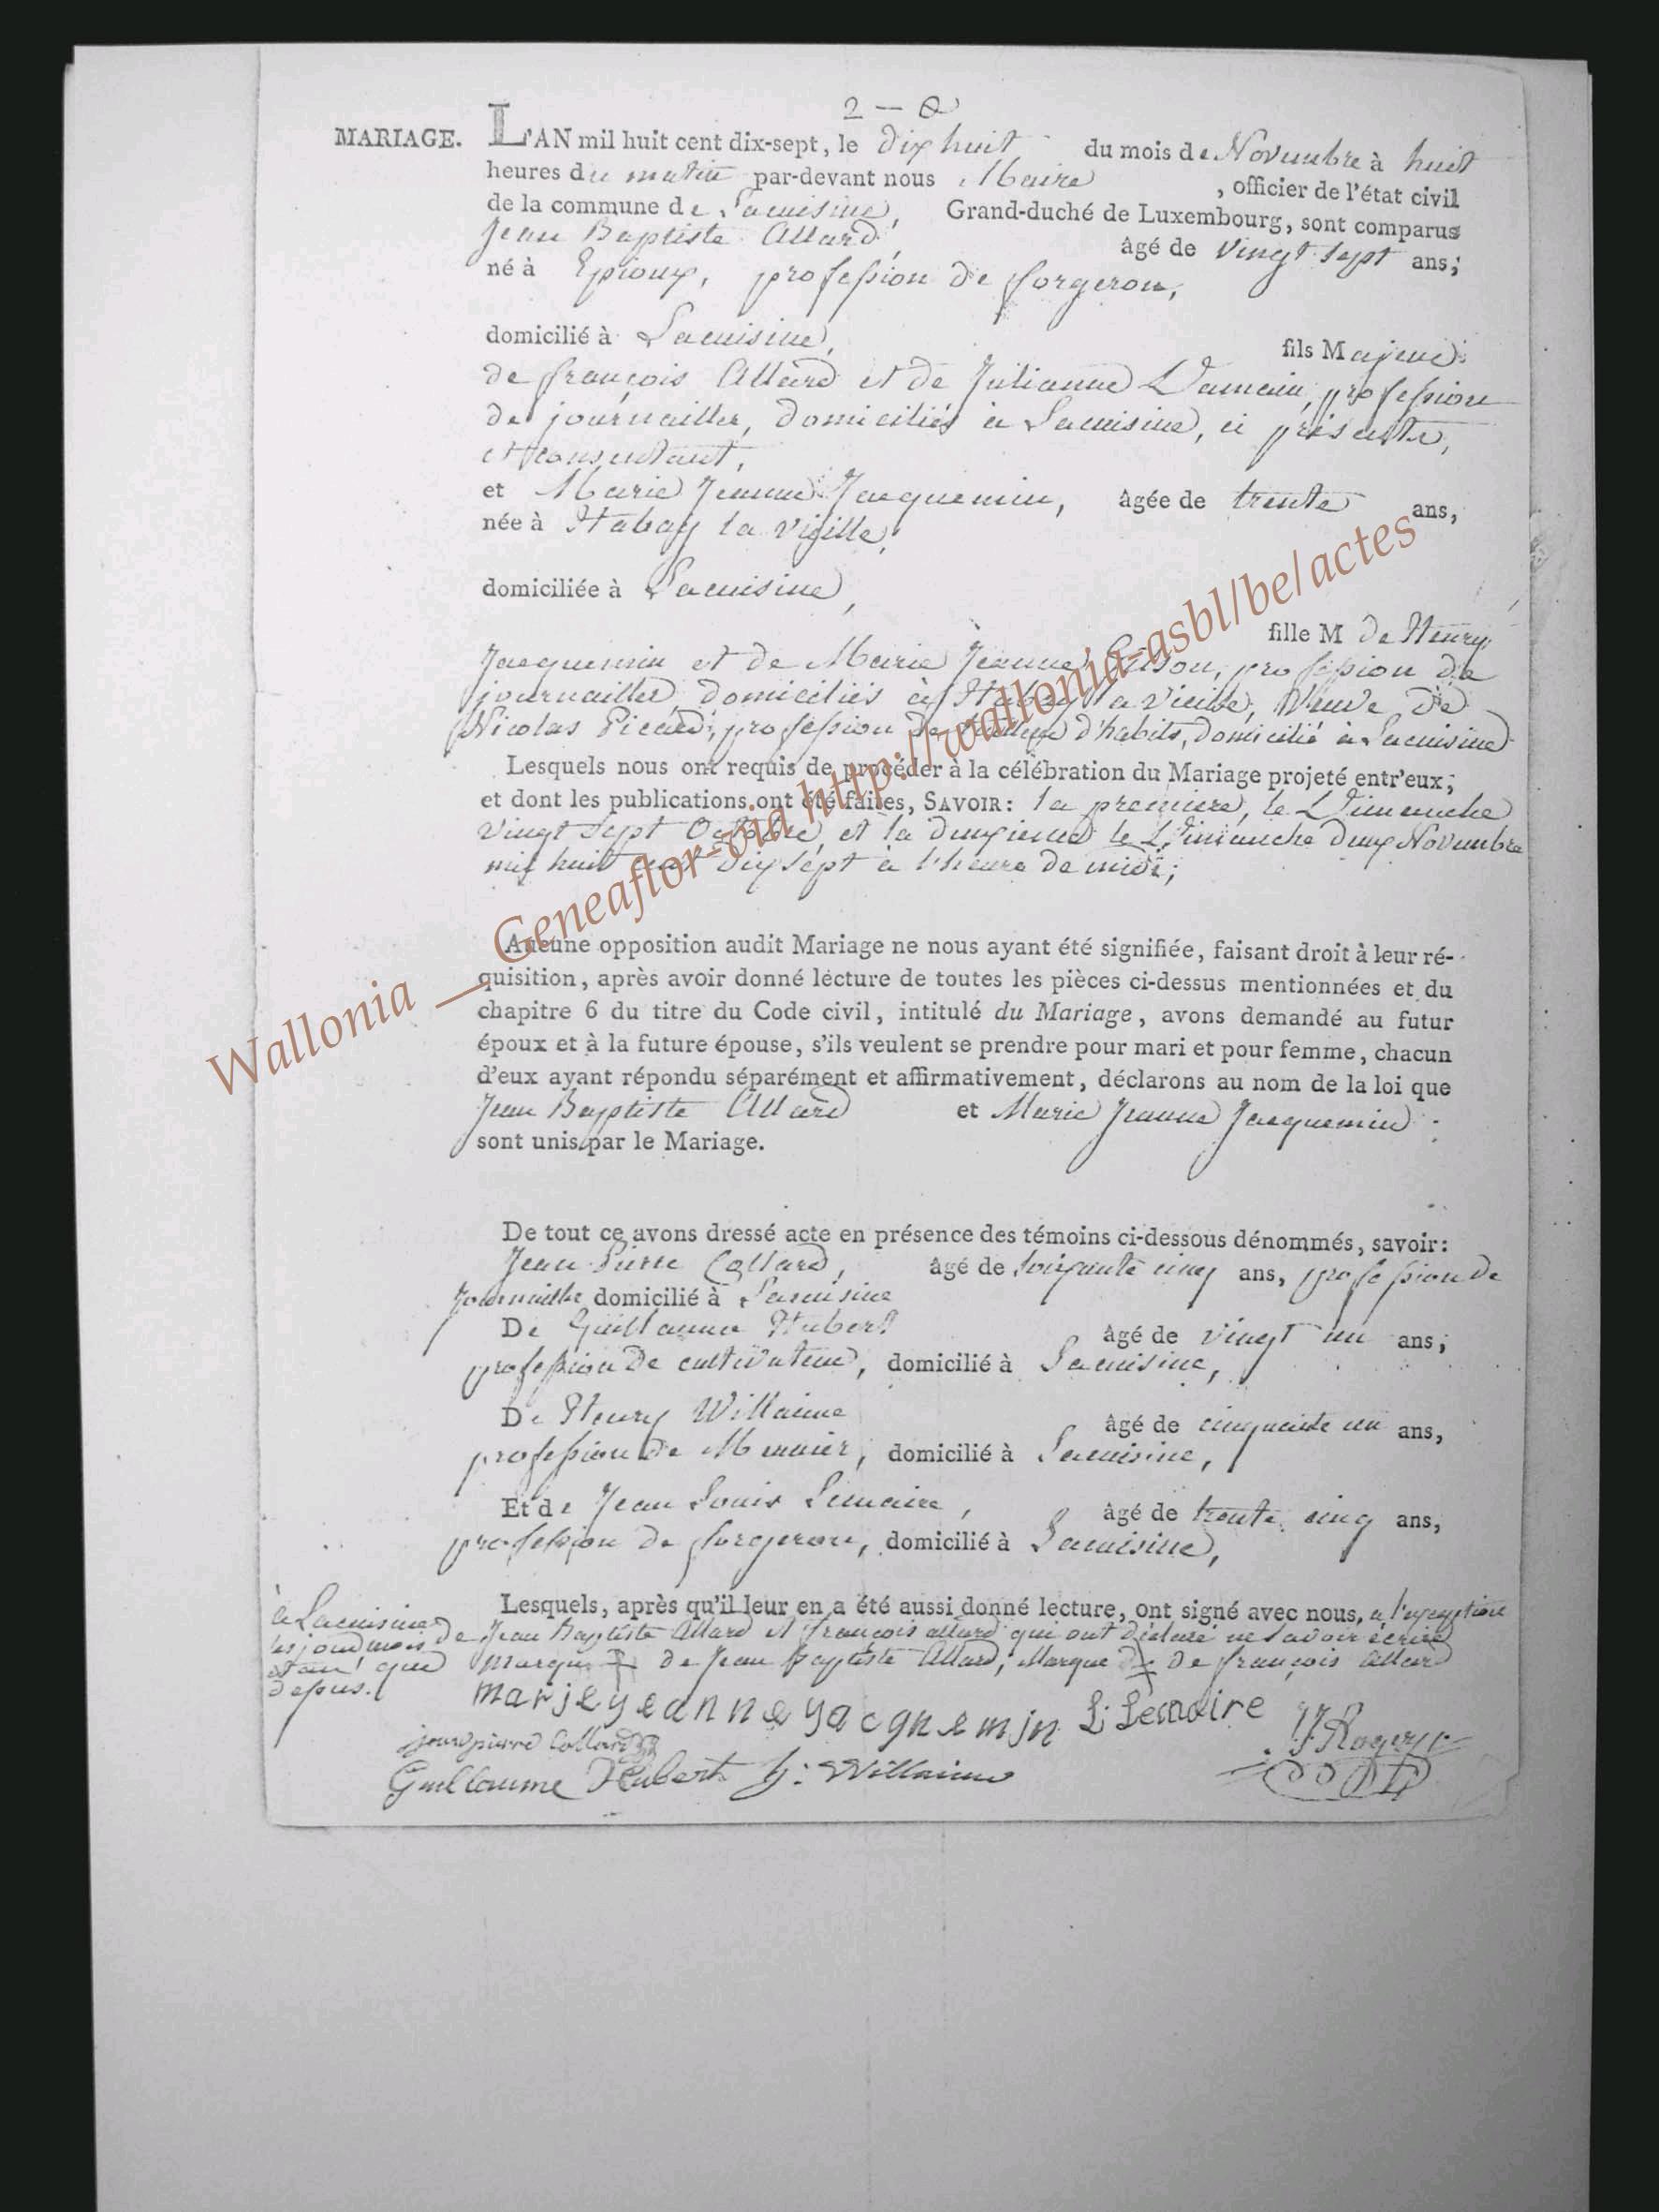 2 — 
MARIAGE. L'AN mil huit cent dix-sept, le dix huit du mois de Novembre à huit
heures du matin par-devant nous Maire , officier de l'état civil
de la commune de Lacuisine, Grand-duché de Luxembourg, sont comparus
Jean Baptiste Allard, âgé de vingt sept ans;
né à Epioux, profession de forgeron,
domicilié à Lacuisine, fils Majeur
de françois Allard et de Julianne Damain, profession
de journailler, domiciliés à Lacuisine, ci présents,
et consentant,
et Marie Jeanne Jacquemin, âgée de trente ans,
née à Habay la vieille,
domiciliée à Lacuisine,
fille M de Henry
Jacquemin et de Marie Jeanne profession de
journailler, domiciliés à Habay la vieille, Veuve de
Nicolas Picard, profession de tailleur d'habits, domicilié à Lacuisine
Lesquels nous ont requis de procéder à la célébration du Mariage projeté entr'eux;
et dont les publications ont été faites, SAVOIR: la premiere, le Dimanche
vingt sept Octobre, et la deuxieme le Dimanche deux Novembre
mil huit cent dix sept à l'heure de midi;
Aucune opposition audit Mariage ne nous ayant été signifiée, faisant droit à leur ré-
quisition, après avoir donné lecture de toutes les pièces ci-dessus mentionnées et du
chapitre 6 du titre du Code civil, intitulé du Mariage, avons demandé au futur
époux et à la future épouse, s'ils veulent se prendre pour mari et pour femme, chacun
d'eux ayant répondu séparément et affirmativement, déclarons au nom de la loi que
Jean Baptiste Allard et Marie Jeanne Jacquemin
sont unis par le Mariage.
De tout ce avons dressé acte en présence des témoins ci-dessous dénommés, savoir:
Jean Pierre Collard, âgé de soixante cinq ans, profession de
Journailler domicilié à Lacuisine
De Guillaume Hubert âgé de vingt un ans;
profession de cultivateur, domicilié à Lacuisine,
De Henry Willaime âgé de cinquante un ans,
profession de Meunier, domicilié à Lacuisine,
Et de Jean Louis Lemaire, âgé de trente cinq ans,
profession de forgeron, domicilié à Lacuisine,
Lesquels, après qu'il leur en a été aussi donné lecture, ont signé avec nous, a l'exception
de Jean Baptiste Allard et françois allard qui ont déclaré ne savoir écrire
marque de Jean Baptiste Allard, Marque de françois Allard
à Lacuisine
les jour, mois
et an que
dessus.
marje yeanne yacqnemjn L: Lemaire
jean pierre Collard
Guillaume Hubert h: Willaime
Wallonia _ Geneaflor-via http://wallonia-asbl/be/actes